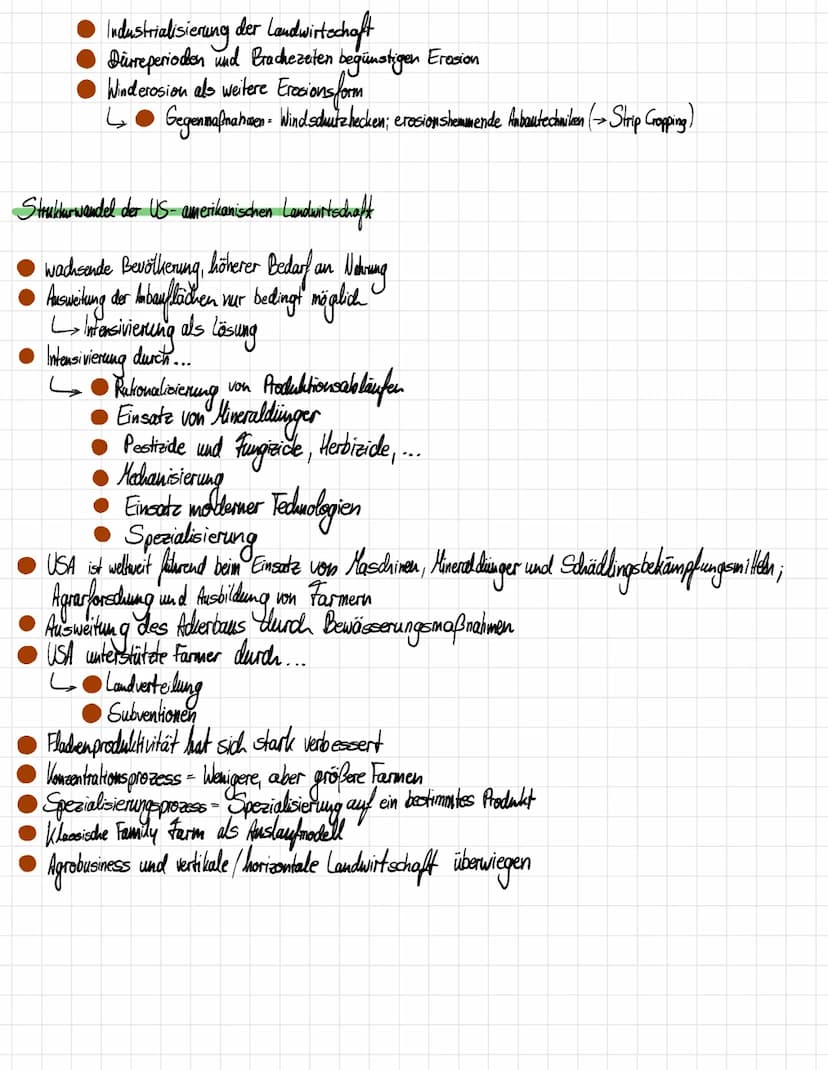 Industrialisierung der Landwirtschaft
Dürreperioden und Brachezeiten begünstigen Erosion
Winderosion als weitere Erosionsform
↳ Gegenmaßnahmen = Windschutzhecken; erosionshemmende Anbautechniken (→ Strip Cropping)
Strukturwandel der US-amerikanischen Landwirtschaft
wachsende Bevölkerung, höherer Bedarf an Nahrung
Ausweitung der Anbauflächen nur bedingt möglich
↳ Intensivierung als Lösung
Intensivierung durch...
↳ Rationalisierung von Produktionsabläufen
Einsatz von Mineraldünger
Pestizide und Fungizide, Herbizide, ...
Mechanisierung
Einsatz moderner Technologien
Spezialisierung
USA ist weltweit führend beim Einsatz von Maschinen, Mineraldünger und Schädlingsbekämpfungsmitteln;
Agrarforschung und Ausbildung von Farmern
Ausweitung des Ackerbaus durch Bewässerungsmaßnahmen
USA unterstützte Farmer durch...
↳ Landverteilung
Subventionen
Flächenproduktivität hat sich stark verbessert
Konzentrationsprozess = Wenigere, aber größere Farmen
Spezialisierungsprozess = Spezialisierung auf ein bestimmtes Produkt
Klassische Family Farm als Auslaufmodell
Agrobusiness und vertikale/horizontale Landwirtschaft überwiegen